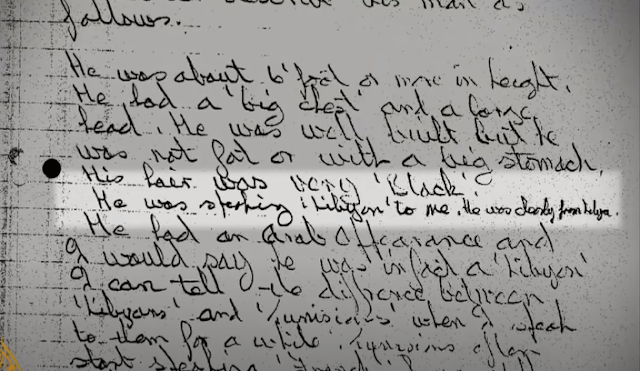 describe this man as
follows.
He was about 6' foot or more in height.
He had a 'big chest' and a large
head. He was well built but he
was not fat or with a big stomach.
His hair was very 'black'.
He was speaking 'Libyan' to me. He was clearly from Libya.
He had an Arab appearance and
I would say he was in fact a 'Libyan'
I can tell the difference between
'Libyans' and 'Tunisians' when I speak
to them for a while. Tunisians often
start speaking 'French' if